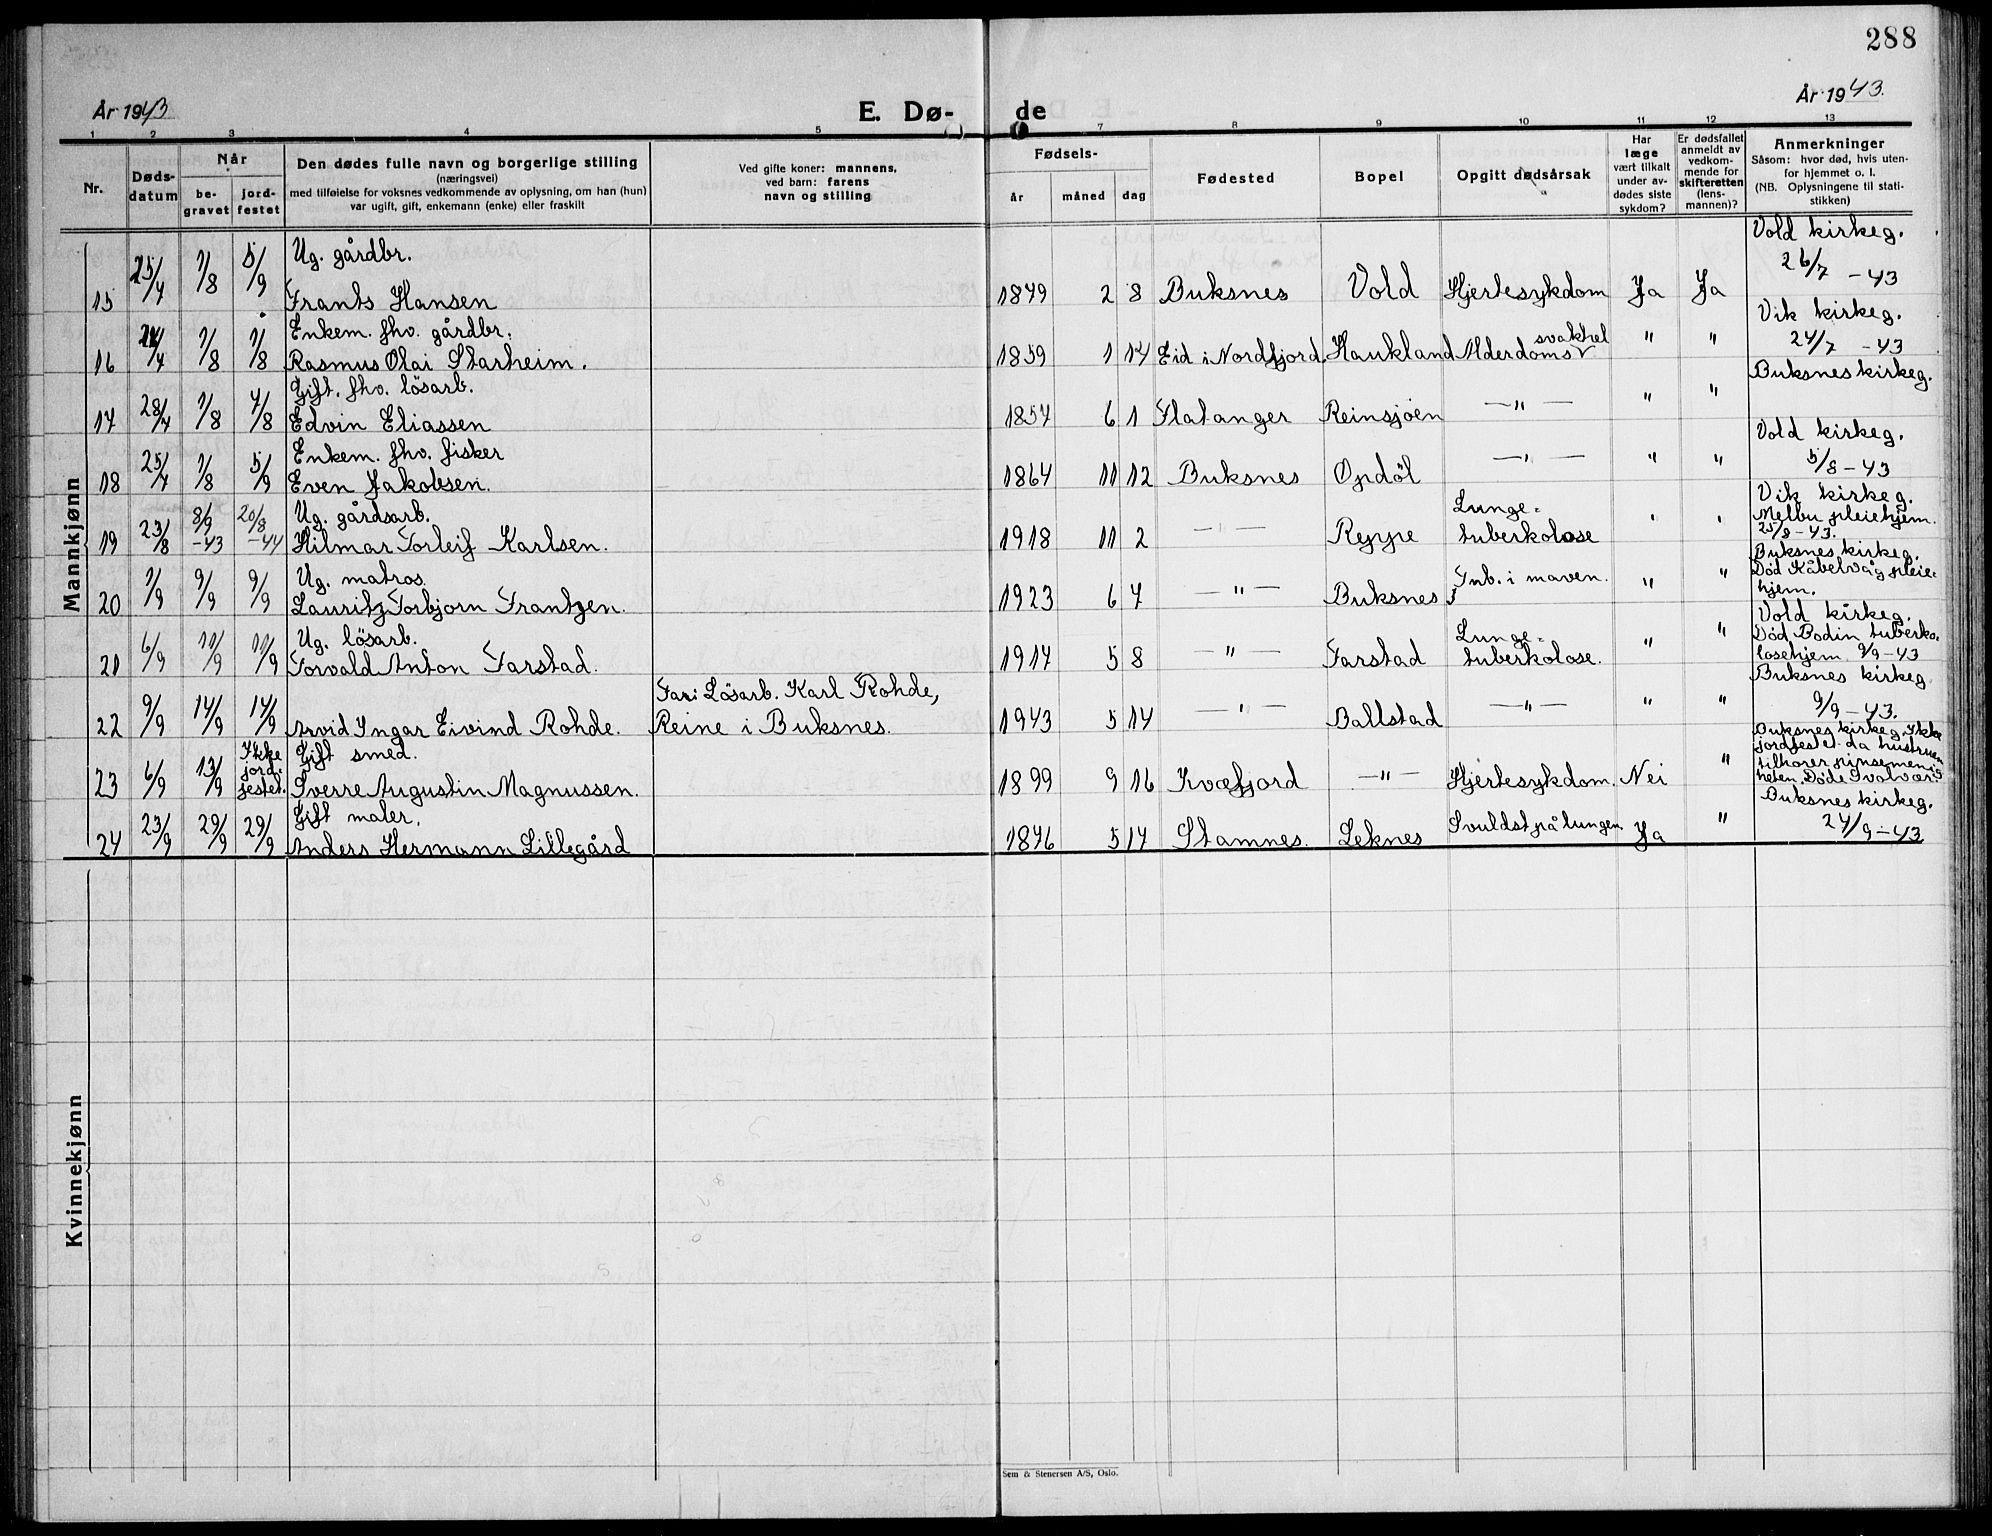 288
År 1943
E. Dø-
de
År 1943.
1 2 3 4 5 7 8 9 10 11 12 13
Nr.
Døds-
datum
Når
be-
gravet
jord-
festet
Den dødes fulle navn og borgerlige stilling
(næringsvei)
med tilføielse for voksnes vedkommende av oplysning, om han (hun)
var ugift, gift, enkemann (enke) eller fraskilt
Ved gifte koner: mannens,
ved barn: farens
navn og stilling
Fødsels-
år måned dag
Fødested
Bopel
Opgitt dødsårsak
Har
læge
vært tilkalt
under av-
dødes siste
sykdom?
Er dødsfallet
anmeldt av
vedkom-
mende for
skifteretten
(lens-
mannen)?
Anmerkninger
Såsom: hvor død, hvis uten-
for hjemmet o. l.
(NB. Oplysningene til stati-
stikken)
Mannkjønn
Ug. gårdbr. Vold kirkeg.
15 25/7 1/8 5/9 Frants Hansen 1879 2 8 Buksnes Vold Hjertesykdom Ja Ja 26/7 - 43
Enkem. fhv. gårdbr. Vik kirkeg.
16 1/8 1/8 Rasmus Olai Starheim. 1859 1 17 Eid i Nordfjord. Haukland Alderdomssvakhet " " 24/7 - 43
Gift. fhv. lösarb. Buksnes kirkeg.
17 28/7 1/8 7/8 Edvin Eliassen 1857 6 1 Flatanger Reinsjöen — " — " "
Enkem. fhv. fisker Vold kirkeg.
18 25/7 1/8 5/9 Even Jakobsen. 1864 11 12 Buksnes Opdöl — " — " " 5/8 - 43
Ug. gårdsarb. Lunge= Vik kirkeg.
19 23/8 8/9 -43 20/8 -44 Hilmar Torleif Karlsen. 1918 11 2 — " — Reppe tuberkolose " " Melbu pleiehjem.
25/8 - 43.
Ug. matros. Buksnes kirkeg.
20 1/9 9/9 9/9 Lauritz Torbjorn Frantzen. 1923 6 7 — " — Buksnes Tub. i maven. " " Död Kåbelvåg pleie-
hjem.
Ug. lösarb. Lunge= Vold kirkeg.
21 6/9 11/9 11/9 Torvald Anton Farstad. 1917 5 8 — " — Farstad tuberkolose. " " Död Bodin tuberko-
losehjem 9/9 - 43
Far: Lösarb. Karl Rohde, Buksnes kirkeg.
22 9/9 14/9 14/9 Arvid Ingar Eivind Rohde. Reine i Buksnes. 1943 5 14 — " — Ballstad — " — " " 9/9 - 43.
Gift smed. Buksnes kirkeg. Ikke
23 6/9 13/9 Ikke jord- festet. Sverre Augustin Magnussen. 1899 9 16 Kvæfjord — " — Hjertesykdom. Nei " jordfestet da hustruen
tilhörer pinsemenig
heten. Döde Svolvær.
Gift maler. Buksnes kirkeg.
24 23/9 29/9 29/9 Anders Hermann Lillegård 1876 5 17 Stamnes. Leknes Svuldst på lungen Ja " 24/9 - 43
Kvinnekjønn
Sem & Stenersen A/S, Oslo.